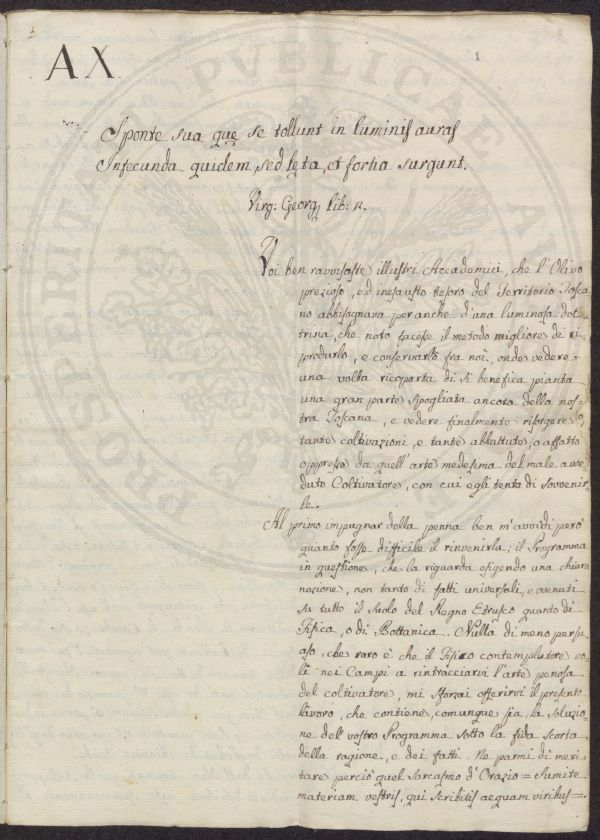 1
AX
Sponte sua quę se tollunt in luminis auras
Infecunda quidem, sed lęta, et fortia surgunt.
Virg: Georg: lib: 2.
Voi ben ravvisaste illustri Accademici, che l'Olivo
prezioso, ed inesausto tesoro del Territorio Tosca
no abbisognava per anche d'una luminosa dot=
trina, che noto facesse il metodo migliore di ri=
produrlo, e conservarlo fra noi, onde vedere
una volta ricoperta di sì benefica pianta
una gran parte spogliata ancora della nos=
tra Toscana, e vedere finalmente risorgere
tante coltivazioni, e tante abbattute, o affatto
oppresse da quell'arte medesima del male avve
duto Coltivatore, con cui egli tenta di sovvenir
le.
Al primo impugnar della penna ben m'avvidi però
quanto fosse difficile il rinvenirla; il Programma
in questione, che la riguarda esigendo una chiara
nozione, non tanto di fatti universali, e venuti
su tutto il suolo del Regno Etrusco quanto di
Fisica, o di Bottanica. Nulla di meno persu
aso, che raro è che il Fisico contemplatore vo=
li nei Campi a rintracciarvi l'arte penosa
del coltivatore, mi sforzai offerirvi il presente
lavoro, che contiene, comunque sia, la soluzio
ne del vostro Programma sotto la fida scorta
della ragione, e dei fatti. Ne parmi di meri=
tare perciò quel Sarcasmo d'Orazio = Sumite
materiam vestris, qui scribitis aequam viribus =.
PROSPERITATI PVBLICAE AV